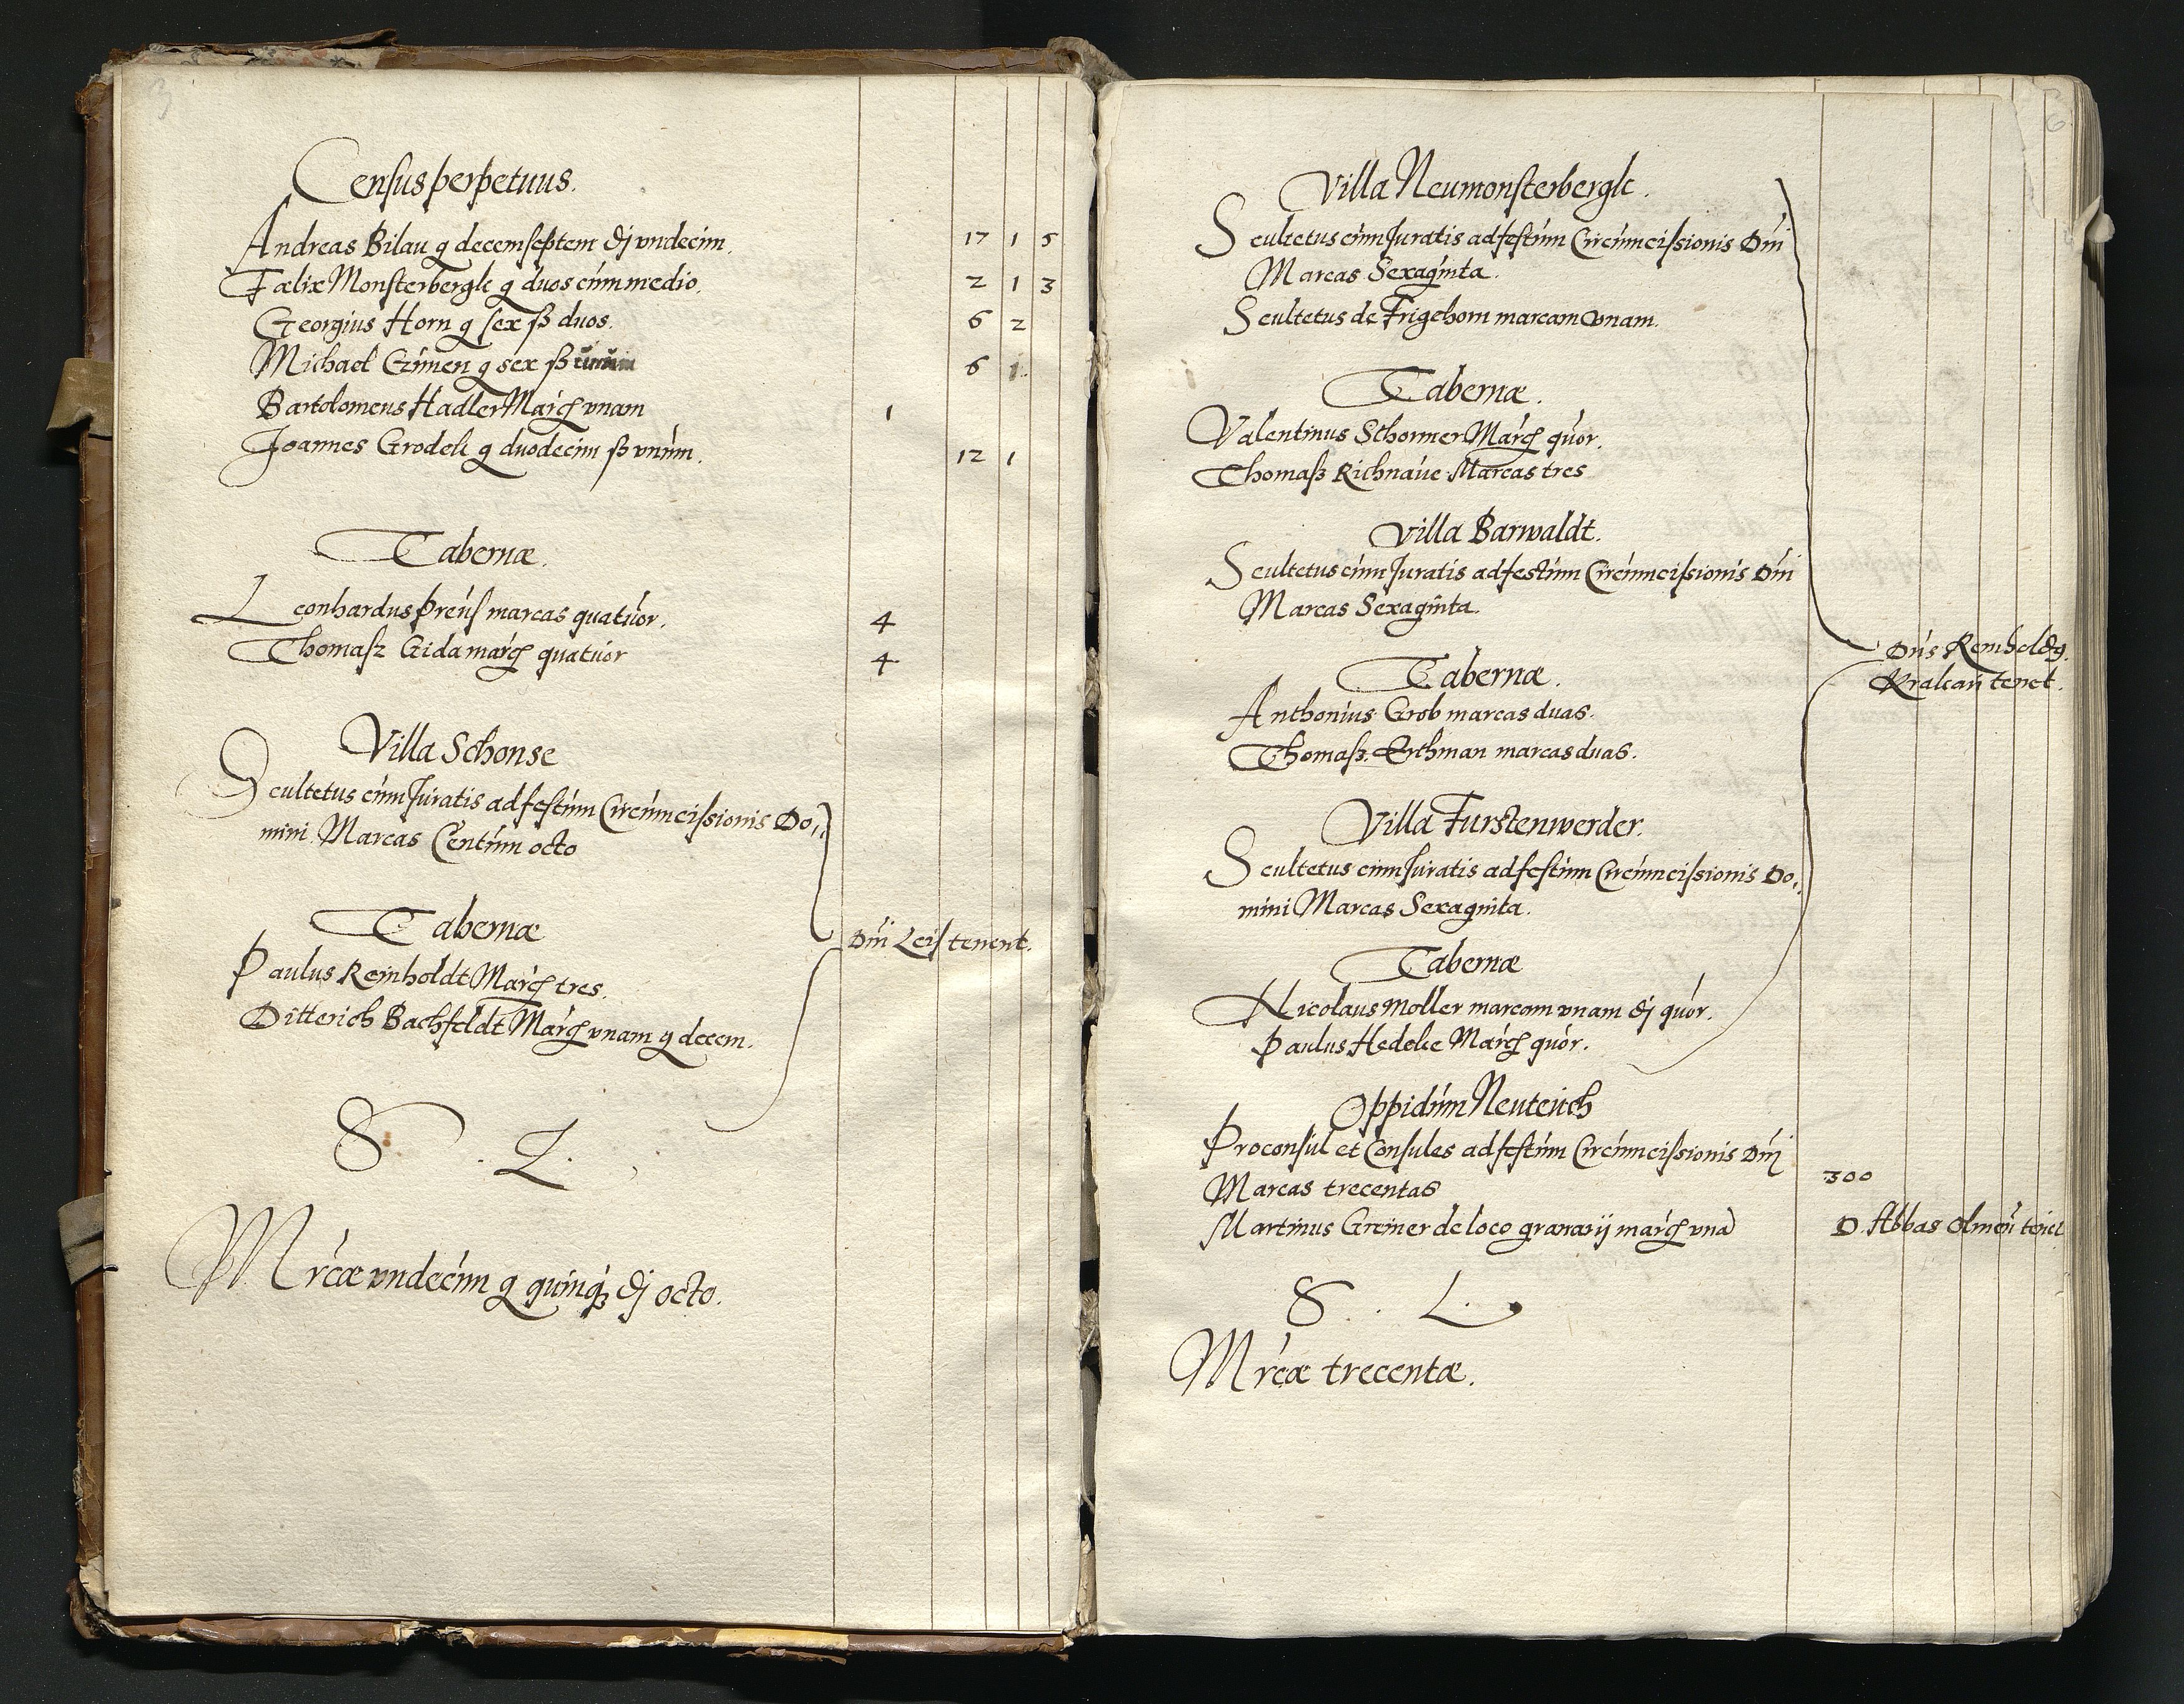 3
Census perpetuus.
Andreas Bilau g decemseptem đ undecim. 17 1 5
Fælix Monsterbergk g duos cum medio. 2 1 3
Georgius Horn g sex ß duos. 6 2
Michael Gimen g sex ß unum 6 1
Bartolomeus Hadler Marcẜ vnam 1
Joannes Grodek g duodecim ß vnum. 12 1
Tabernæ.
Leonhardus Preuß marcas quatuor. 4
Thomaß Gida marcẜ quatuor 4
Villa Schonse
Scultetus cum Juratis ad festum Circumcissionis Do„
mini Marcas Centum octo
Tabernæ
Dni Leis tenent.
Paulus Reinholdt Marcẜ tres.
Ditterich Bachfeldt Marcẜ vnam g decem.
S . L .
Mrcæ vndecim g quinqȝ đ octo.
6
Villa Neumonsterbergk.
Scultetus cum Juratis ad festum Circumcissionis Dni
Marcas Sexaginta.
Scultetus de Frigehom marcam vnam.
Tabernæ.
Valentinus Schormer Marcẜ quor.
Thomaß Richnaue Marcas tres
Villa Barwaldt.
Scultetus cum Juratis ad festum Circumcissionis Dni
Marcas Sexaginta.
Dns Reinholdg.
Krakau tenet.
Tabernæ.
Anthonius Grob marcas duas.
Thomaß Erthman marcas duas.
Villa Furstenwerder.
Scultetus cum Juratis ad festum Circumcissionis Do„
mini Marcas Sexaginta.
Tabernæ
Nicolaus Moller marcam vnam đ quor.
Paulus Hedeke Marcẜ quor.
Oppidum Neuteich
Proconsul et Consules ad festum Circumcissionis Dni
Marcas trecentas 300
Martinus Greiner de loco granarij marcẜ vnã D. Abbas olmeñ tenet
S . L .
Mrcæ trecentæ.